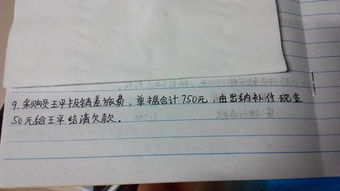 9. 采购员王平报销差旅费,单据合计750元,由出纳补付现金
50元给王平结清欠款.